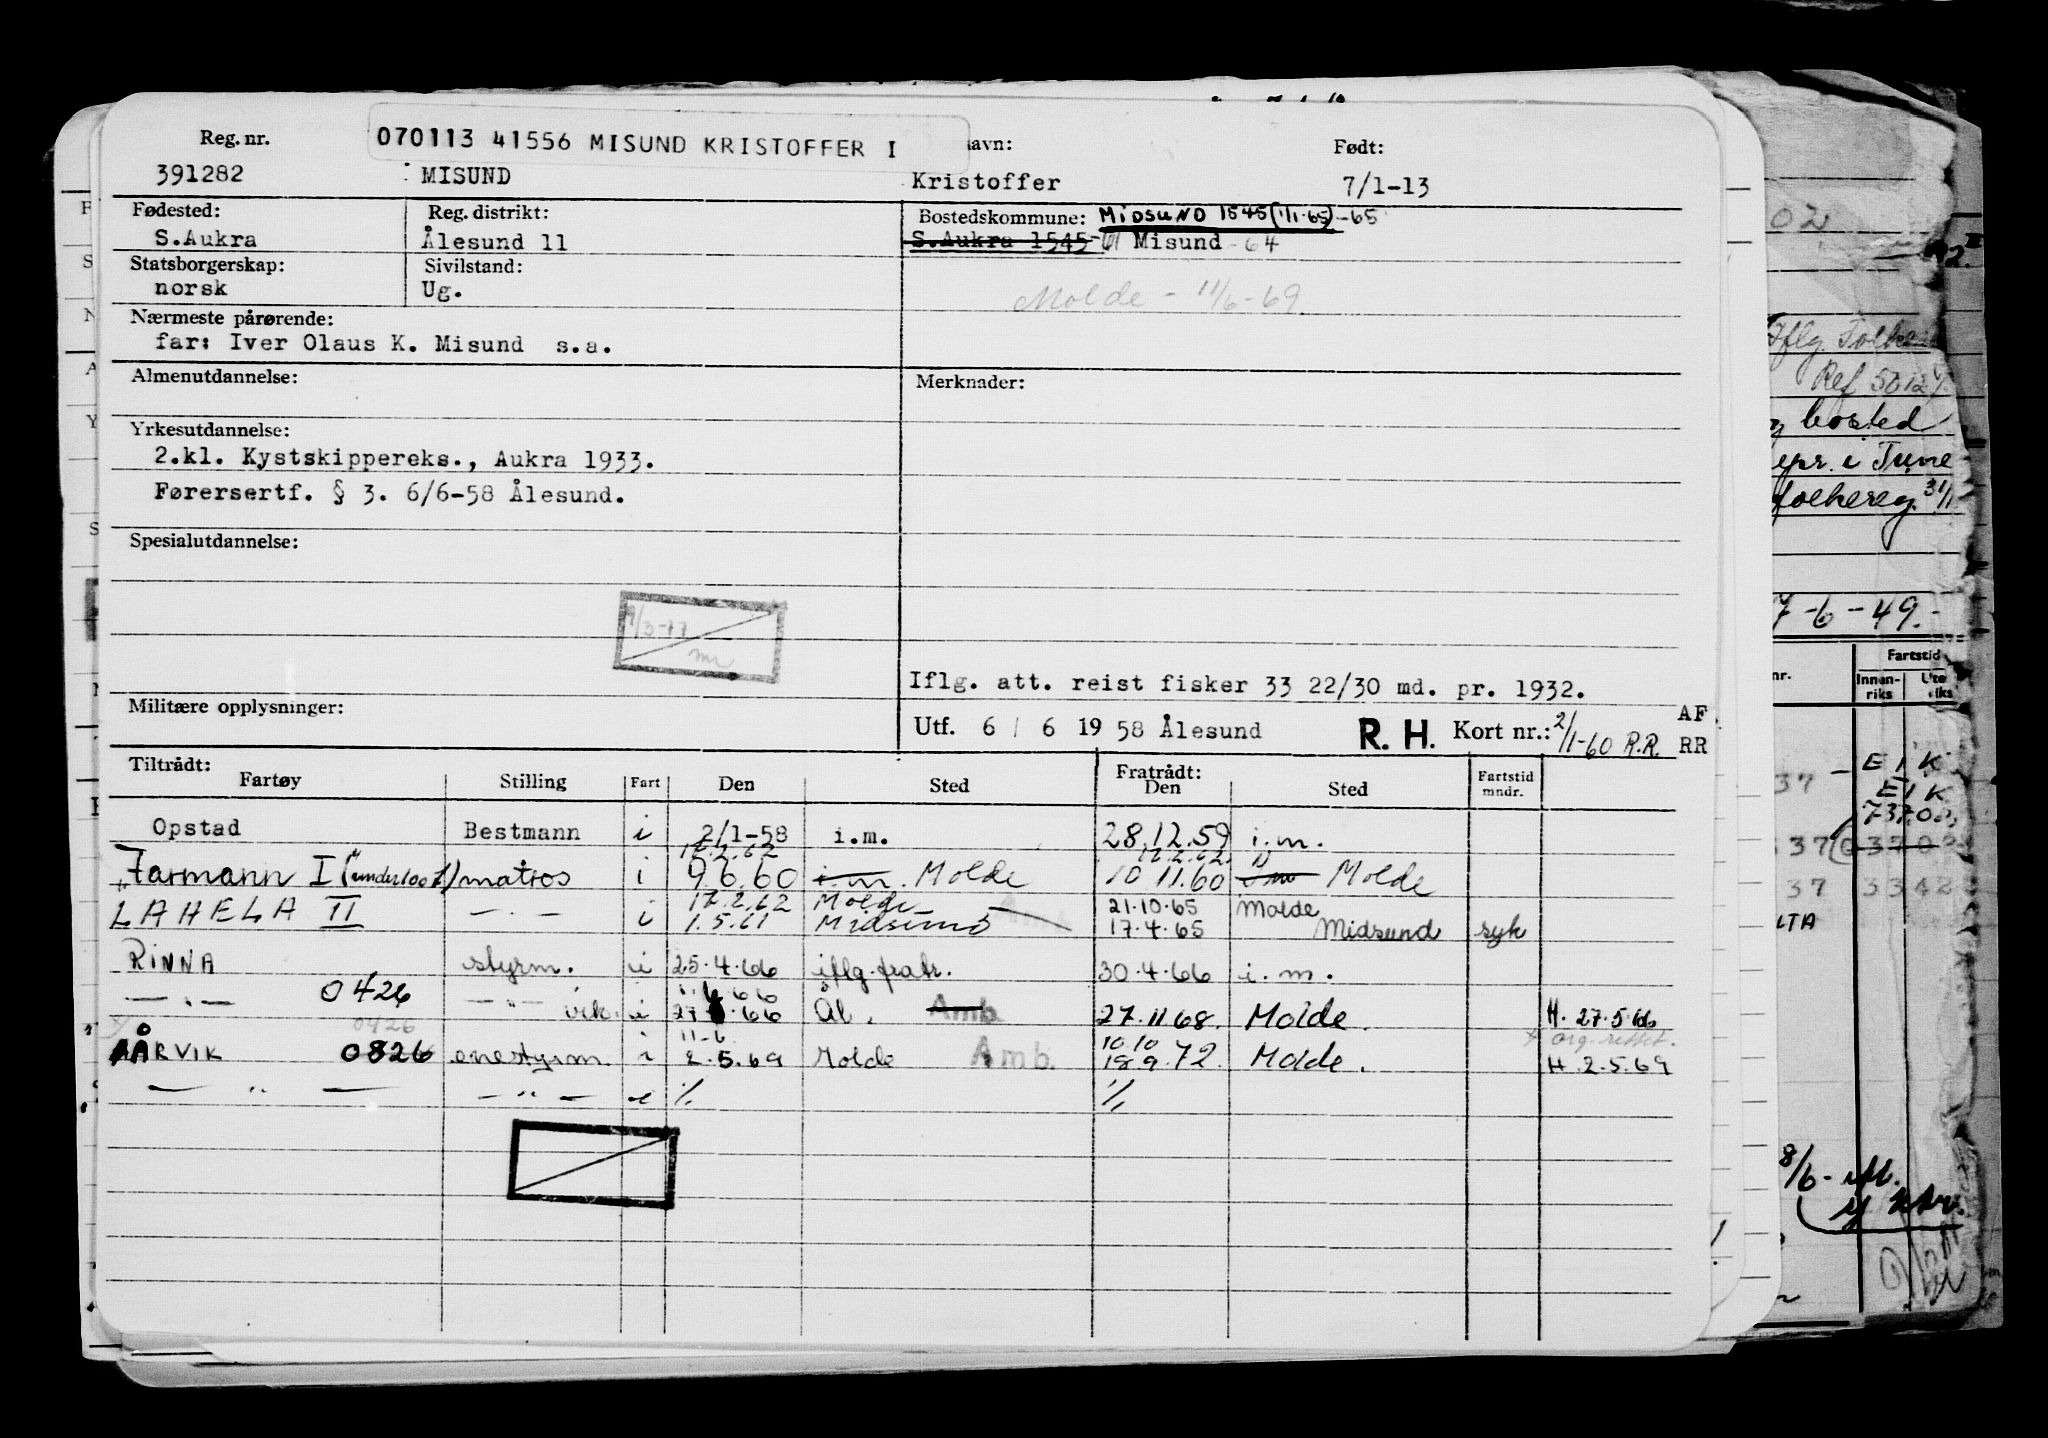 Reg. nr. 070113 41556 MISUND KRISTOFFER I avn: Født:
391282 MISUND Kristoffer 7/1-13
Fødested: Reg. distrikt: Bostedskommune: MIDSUND 1545 (1/1-65) -65
S.Aukra Ålesund 11 S.Aukra 1545-61 Misund -64
Statsborgerskap: Sivilstand:
norsk Ug. Molde - 11/6-69
Nærmeste pårørende:
far: Iver Olaus K. Misund s.a.
Almenutdannelse: Merknader:
Yrkesutdannelse:
2.kl. Kystskippereks., Aukra 1933.
Førersertf. § 3. 6/6-58 Ålesund.
Spesialutdannelse:
Iflg. att. reist fisker 33 22/30 md. pr. 1932.
Militære opplysninger: Utf. 6 / 6 19 58 Ålesund R. H. Kort nr.: 2/1-60 R.R. AF RR
Tiltrådt: Fratrådt:
Fartøy Stilling Fart Den Sted Den Sted Fartstid mndr.
Opstad Bestmann i 2/1-58 i.m. 28.12.59 i.m.
17.2.62 17.2.62
Farmann I (under 100 t) matros i 9.6.60 i.m. Molde 10 11.60 Molde
17.2.62 Molde 21.10.65 Molde
LAHELA II — . — i 1.5.61 Midsund 17.4.65 Midsund syk
RINNA styrm. i 25.4.66 iflg. fratr. 30.4.66 i.m.
— " — 0426 — " — vik. i 27 66 Ål. Amb 27.11 68. Molde. H. 27.5.66
0426 11-6 10.10 org. rettet.
ÅRVIK 0826 enestyrm. i 2.5.69 Molde Amb. 18 9.72. Molde. H. 2.5.69
— " — — " — i 1/1 1/1
02
Iflg.
Ref 50124
bosted
i Tune
folkereg. 31/1
7-6-49.
Fartstid
nr. Innen-riks
37 E I K
E I K
7370
37 3342
8/6-